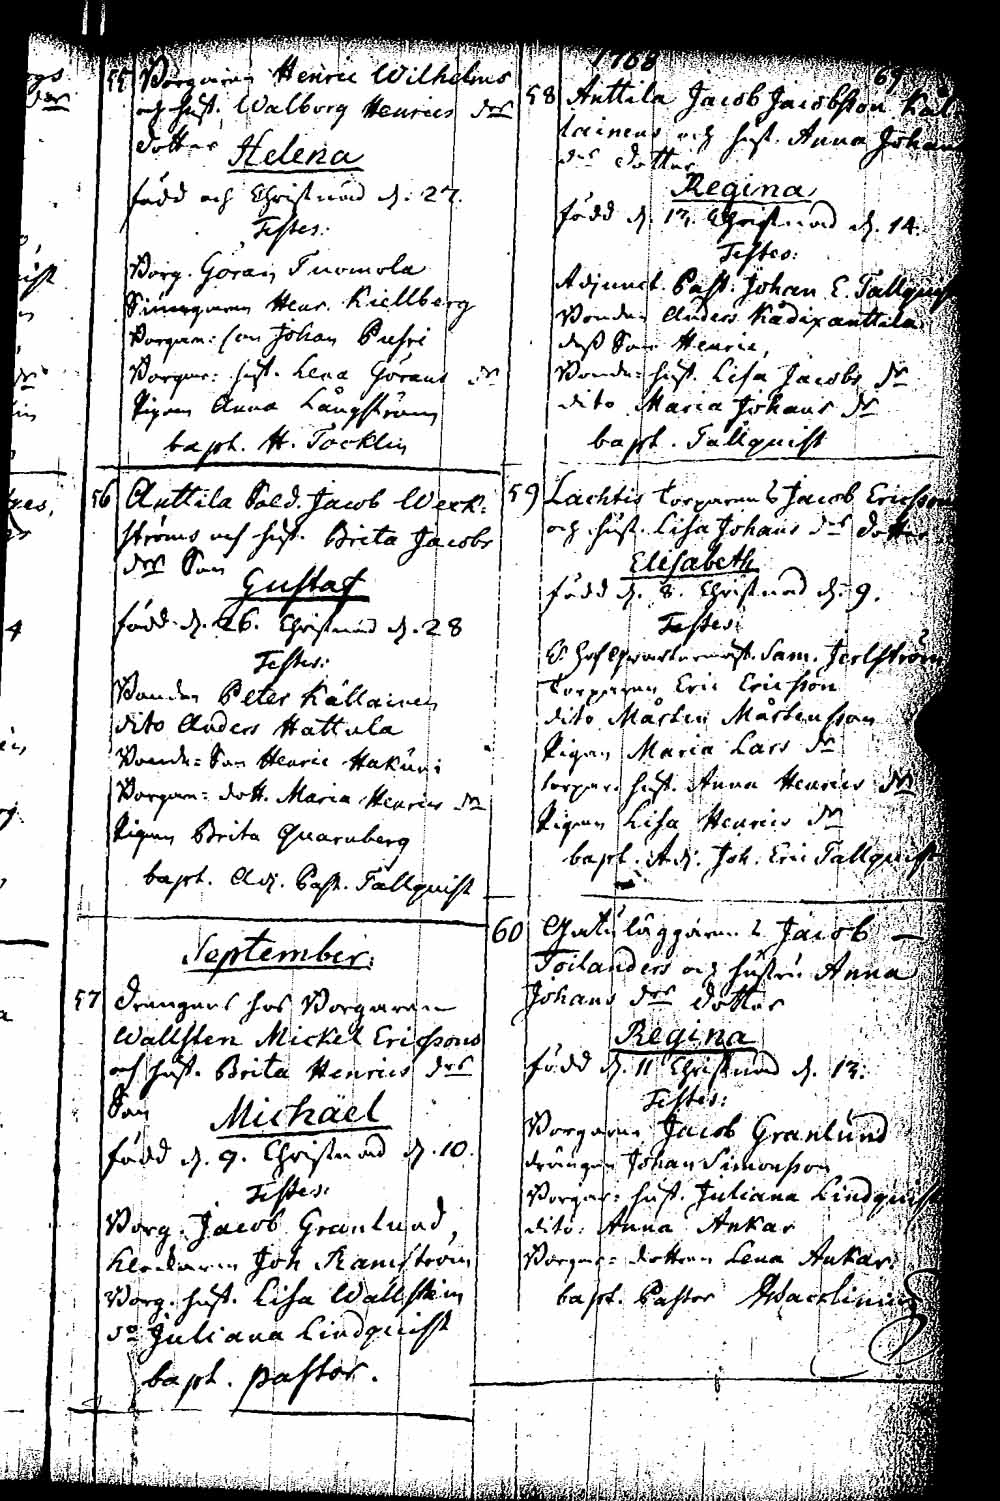 55 Borgaren Henric Wilhelms
och hust. Walborg Henrics dr
dotter
Helena
född och Christnad d. 27.
Testes:
Borg. Göran Tuomola
Henr. Kiellberg
Borgare: son Johan
Borgar: hust. Lena Görans dr
Pigan Anna Långström
bapt. H. Tocklin
56 Anttila Sold. Jacob Werk:
ströms och hust. Brita Jacobs
der Son
Gustaf
född d. 26. Christnad d. 28
Testes:
Bonden Peter Källainen
dito Anders Hattula
Bonde: Son Henric Hakuni
Borgare: dott. Maria Henrics dr
Pigan Brita Quarnberg
bapt. Adj. Past. Tallquist
September:
57 Drengens hos Borgaren
Wallsten Mickel Ericssons
och hust. Brita Henrics der
Son
Michael
född d. 9. Christnad d. 10.
Testes:
Borg. Jacob Granlund
Joh Ramström
Borg. hust. Lisa Wallstein
do Juliana Lindquist
bapt. pastor.
1768
69
58 Anttila Jacob Jacobsson Käl
lainens och hust. Anna Johans
der dotter
Regina
född d. 13. Christnad d. 14.
Testes:
Adjunct. Past. Johan E. Tallquist
Bonden Anders Kådixanttila
dess Son Henric,
Bonde: hust. Lisa Jacobs dr
dito Maria Johans dr
bapt. Tallquist
59 Lachtis torparens Jacob Ericssons
och hust. Lisa Johans der dotter
Elisabeth
född d. 8. Christnad d. 9.
Testes:
Sam. Jerlström
torparen Eric Ericsson
dito Mårten Mårtensson
Pigan Maria Lars dr
torpar. hust. Anna Henrics dr
Pigan Lisa Henrics dr
bapt. Adj. Joh. Eric Tallquist
60 Gatuläggaren Jacob
Toilanders och hustru Anna
Johans der dotter
Regina
född d. 11 Christnad d. 13.
Testes:
Borgaren Jacob Granlund
drängen Johan Simonsson
Borgar: hust. Juliana Lindquist
dito: Anna Ankar
Borgar: dottren Lena Ankar.
bapt. Pastor